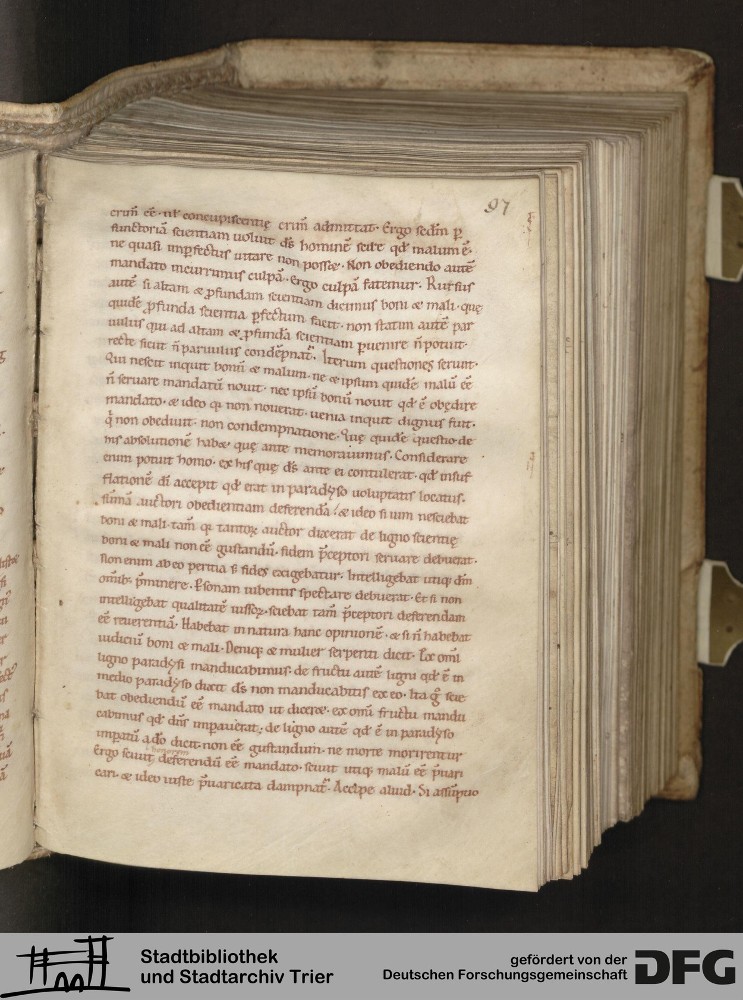 97
crim̄ eē · nł concupiscentię crim̄ admittat · Ergo sedm̄ p̱
functoriā scientiam uoluit dſ hominē scire qđ malum ē ·
ne quasi imp̱fectus uitare non posset · Non obediendo autē
mandato incurrimus culpā · Ergo culpā fatemur · Rursus
autē si altam & p̱fundam scientiam dicimus boni & mali · quę
quidē p̱funda scientia p̱fectum facit · non statim autē par
uulus qui ad altam & p̱fundā scientiam p̱uenire ñ potuit ·
recte sicut ñ paruulus condēpnat᷑ · Iterum questiones serunt ·
Qui nescit inquit bonū & malum · ne & ipsum quidē malū eē
ñ seruare mandatū nouit · nec ipsū bonū nouit qđ ē obędire
mandato · & ideo qi non nouerat · uenia inquit dignus fuit ·
qi non obediuit · non condempnatione · Quę quidē questio de
his absolutionē habet quę ante memorauimus · Considerare
enim potuit homo · ex his quę dſ ante ei contulerat · qđ insuf
flationē di accepit qđ erat in paradyso uoluptatis locatus ·
sūmā auctori obedientiam deferendā · & ideo si uim nesciebat
boni & mali · tam̄ qi tantoꝝ auctor dixerat de ligno scientię
boni & mali non eē gustandū · fidem p̄ceptori seruare debuerat ·
Non enim ab eo peritia s̄ fides exigebatur · Intelligebat utiq; dm̄
omīb; p̄minere · P̱sonam iubentis spectare debuerat · Et si non
intelligebat qualitatē iussoꝝ · sciebat tam̄ p̄ceptori deferendam
eē reuerentiā · Habebat in natura hanc opinionē · & si ñ habebat
iudiciū boni & mali · Deniq; & mulier serpenti dicit · Ex omī
ligno paradysi manducabimus · de fructu autē ligni qđ ē in
medio paradyso dixit dſ non manducabitis ex eo · Itaq; g̊ scie
bat obediendū eē mandato ut diceret · ex omī fructu mandu
cabimus qđ dn̄s imp̱auerat · de ligno autē qđ ē in paradyso
imp̱atū a dō dicit · non eē gustandum · ne morte morirentur
honorem
Ergo sciuit deferendū eē mandato · sciuit utiq; malū eē p̄uari
cari · & ideo iuste p̄uaricata dampnat᷑ · Accipe aliud · Si assūptio
Stadtbibliothek
und Stadtarchiv Trier
gefördert von der
Deutschen Forschungsgemeinschaft
DFG